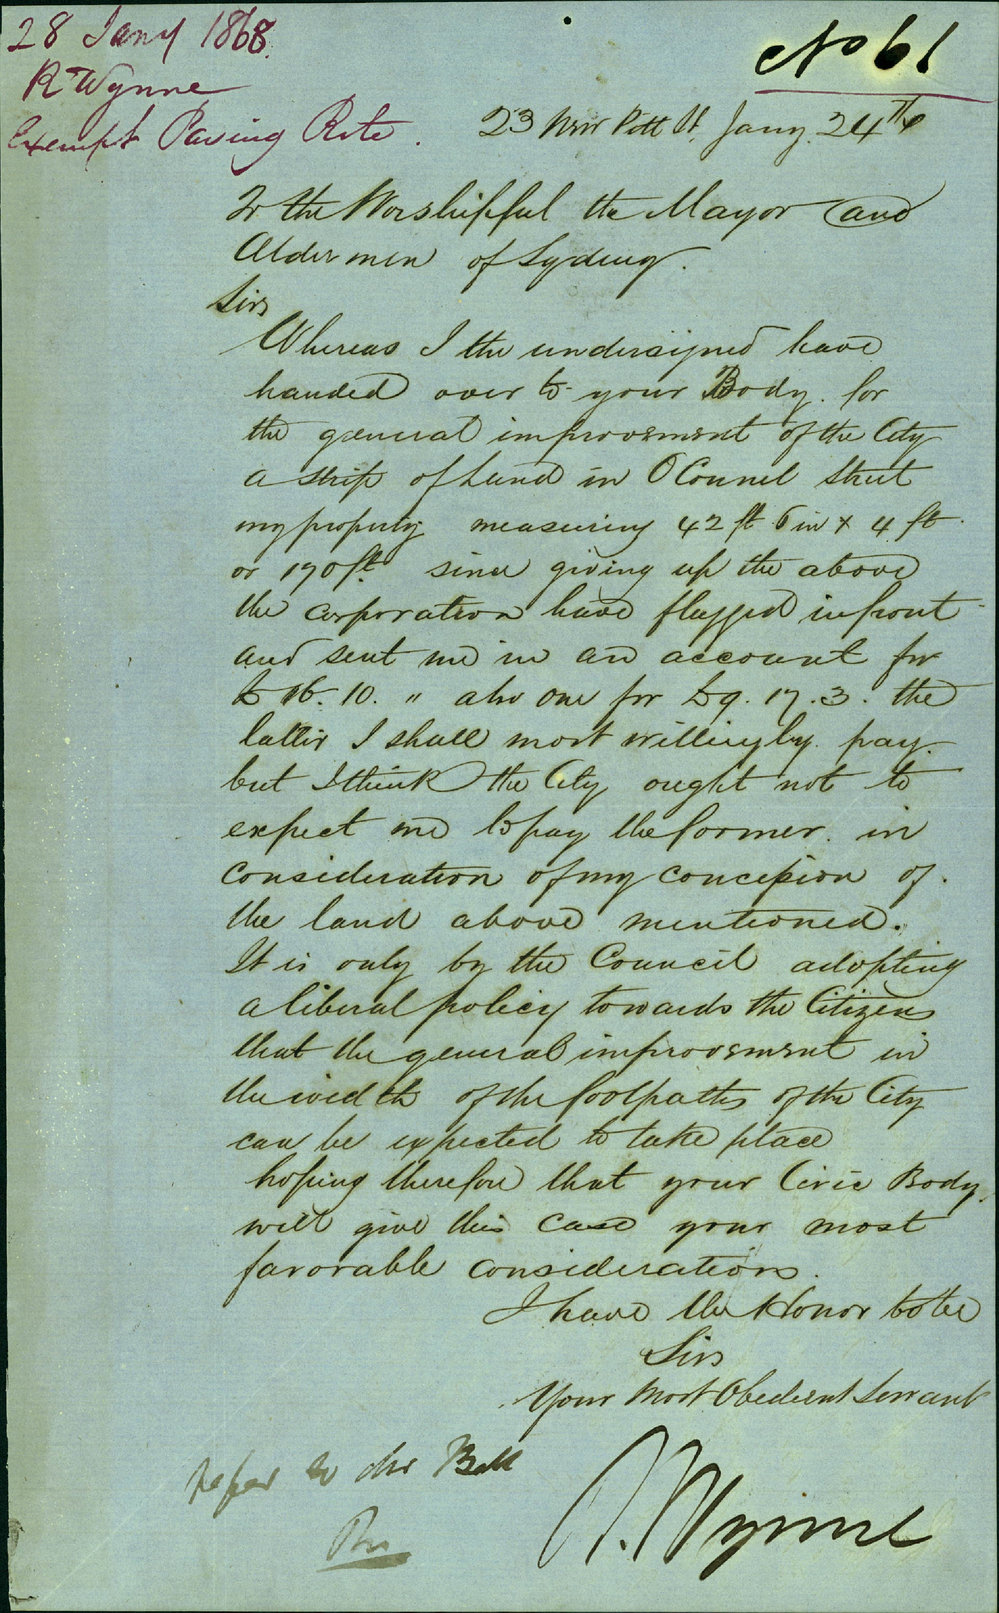 28 Jany 1868.
R Wynne
Exempt Paving Rate.
No 61
23 New Pitt St, Jany. 24th
To the Worshipful the Mayor and
Aldermen of Sydney.
Sirs
Whereas I the undersigned have
handed over to your Body. for
the general improvement of the City
a strip of Land in O'Connel Street
my property measuring 42 ft 6 in x 4 ft
or 170 ft. since giving up the above
the corporation have flagged infront
and sent me in an account for
£16.10. " also one for £9.17.3. the
latter I shall most willingly pay.
but I think the City ought not to
expect me to pay the former. in
consideration of my concession of.
the land above mentioned.
It is only by the Council adopting
a liberal policy towards the Citizens
that the general improvement in
the width of the footpaths of the City
can be expected to take place
hoping therefore that your Civic Body,
will give this case your most
favorable considerations.
I have the Honor to be
Sirs
Your Most Obedient Servant
R. Wynne
Refer to Mr Bell